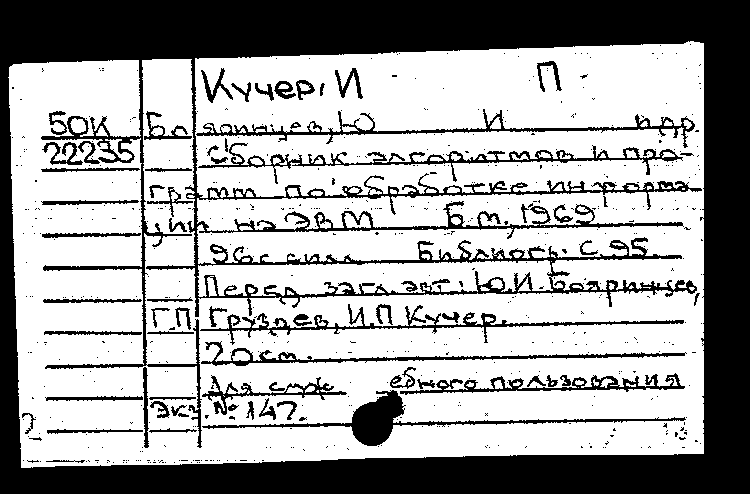 Кучер, И П
50К Бояринцев, Ю И и др
22235 Сборник алгоритмов и про-
грамм по обработке информа-
ции на ЭВМ Б.м., 1969
96с силл Библиогр. с. 95.
Перед загл. авт.: Ю.И. Бояринцев,
Г.П. Груздев, И.П Кучер.
20 см.
Для служебного пользования
Экз. № 147.
2